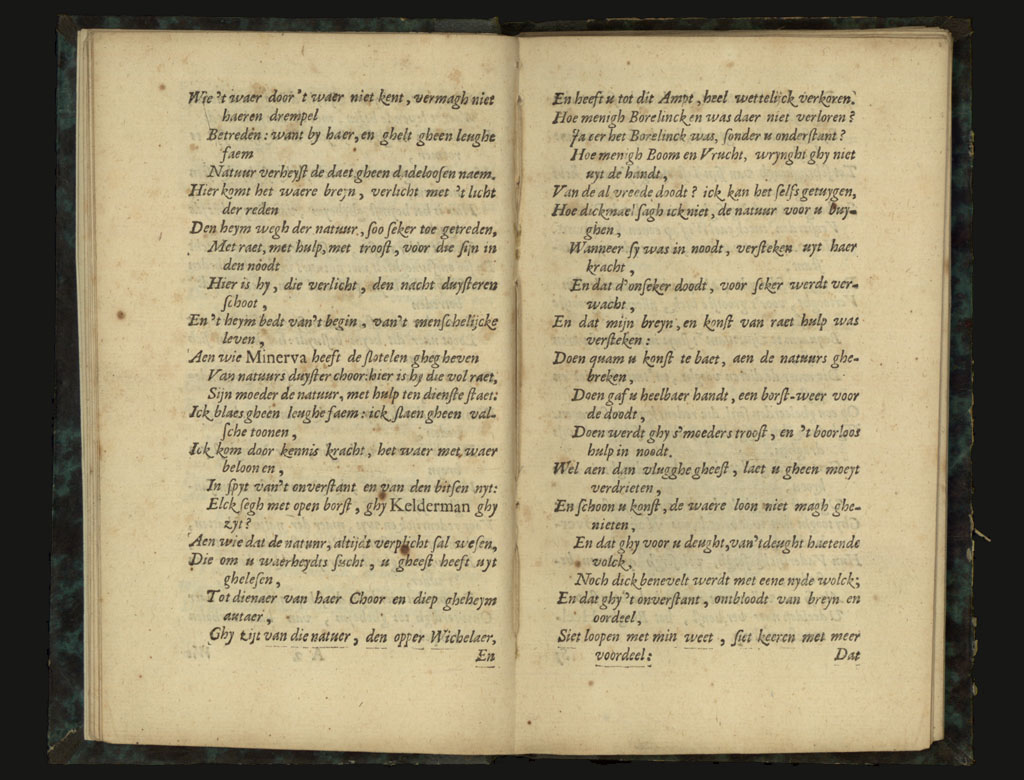 Wie 't waer door 't waer niet kent, vermagh niet
haeren drempel
Betreden: want by haer, en ghelt gheen leughe
faem
Natuur verheyst de daet gheen dadeloosen naem.
Hier komt het waere breyn, verlicht met 't licht
der reden
Den heym wegh der natuur, soo seker toe getreden,
Met raet, met hulp, met troost, voor die sijn in
den noodt
Hier is hy, die verlicht, den nacht duysteren
schoot,
En 't heym bedt van't begin, van't menschelijcke
leven,
Aen wie Minerva heeft de slotelen ghegheven
Van natuurs duyster choor: hier is hy die vol raet,
Sijn moeder de natuur, met hulp ten dienste staet:
Ick blaes gheen leughe faem: ick slaen gheen val-
sche toonen,
Ick kom door kennis kracht, het waer met waer
beloonen,
In spyt van't onverstant en van den bitsen nyt:
Elck segh met open borst, ghy Kelderman ghy
zyt?
Aen wie dat de natuur, altijdt verplicht sal wesen,
Die om u waerheydts sucht, u gheest heeft uyt
ghelesen,
Tot dienaer van haer Choor en diep gheheym
autaer,
Ghy zijt van die natuer, den opper Wichelaer,
En
En heeft u tot dit Ampt, heel wettelijck verkoren.
Hoe menigh Borelinck en was daer niet verloren?
Ja eer het Borelinck was, sonder u onderstant?
Hoe menigh Boom en Vrucht, wrynght ghy niet
uyt de handt,
Van de al vreede doodt? ick kan het selfs getuygen,
Hoe dickmael sagh ick niet, de natuur voor u buy-
ghen,
Wanneer sy was in noodt, versteken uyt haer
kracht,
En dat d'onseker doodt, voor seker werdt ver-
wacht,
En dat mijn breyn, en konst van raet hulp was
versteken:
Doen quam u konst te baet, aen de natuurs ghe-
breken,
Doen gaf u heelbaer handt, een borst-weer voor
de doodt,
Doen werdt ghy s'moeders troost, en 't boorloos
hulp in noodt.
Wel aen dan vlugghe gheest, laet u gheen moeyt
verdrieten,
En schoon u konst, de waere loon niet magh ghe-
nieten,
En dat ghy voor u deught, van't deught haetende
volck,
Noch dick benevelt werdt met eene nyde wolck;
En dat ghy 't onverstant, ontbloodt van breyn en
oordeel,
Siet loopen met min weet, siet keeren met meer
voordeel:
Dat